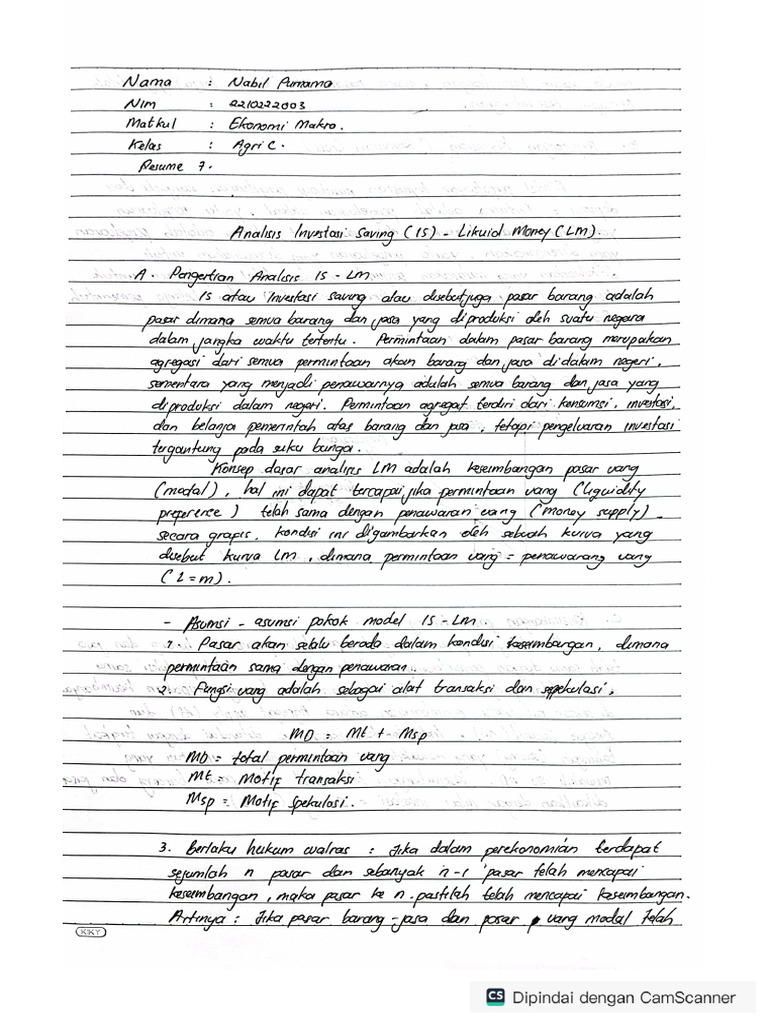 Nama : Nabil Purnama
Nim : 2210222003
Matkul : Ekonomi Makro.
Kelas : Agri C.
Resume 7.
Analisis Investasi Saving (IS) - Likuid Money (LM).
A. Pengertian Analisis IS - LM
IS atau investasi saving atau disebut juga pasar barang adalah
pasar dimana semua barang dan jasa yang diproduksi oleh suatu negara
dalam jangka waktu tertertu. Permintaan dalam pasar barang merupakan
agregasi dari semua permintaan akan barang dan jasa didalam negeri,
sementara yang menjadi penawarnya adalah semua barang dan jasa yang
diproduksi dalam negeri. Permintaan agregat terdiri dari konsumsi, investasi,
dan belanja pemerintah atas barang dan jasa, tetapi pengeluaran investasi
tergantung pada suku bunga.
Konsep dasar analisis LM adalah keseimbangan pasar uang
(modal), hal ini dapat tercapai jika permintaan uang (liquidity
preference) telah sama dengan penawaran uang (money supply)
secara grapis, kondisi ini digambarkan oleh sebuah kurva yang
disebut kurva LM, dimana permintaan uang = penawarang uang
(L = m).
- Asumsi - asumsi pokok model IS - LM
1. Pasar akan selalu berada dalam kondisi keseimbangan, dimana
permintaan sama dengan penawaran.
2. Fungsi uang adalah sebagai alat transaksi dan spekulasi,
MD = Mt + Msp
MD = total permintaan uang
Mt = Motif transaksi
Msp = Motif spekulasi.
3. Berlaku hukum walras : Jika dalam perekonomian terdapat
sejumlah n pasar dan sebanyak n-1 pasar telah mencapai
keseimbangan, maka pasar ke n pastilah telah mencapai keseimbangan.
Artinya : Jika pasar barang-jasa dan pasar uang modal telah
KKY
CS Dipindai dengan CamScanner